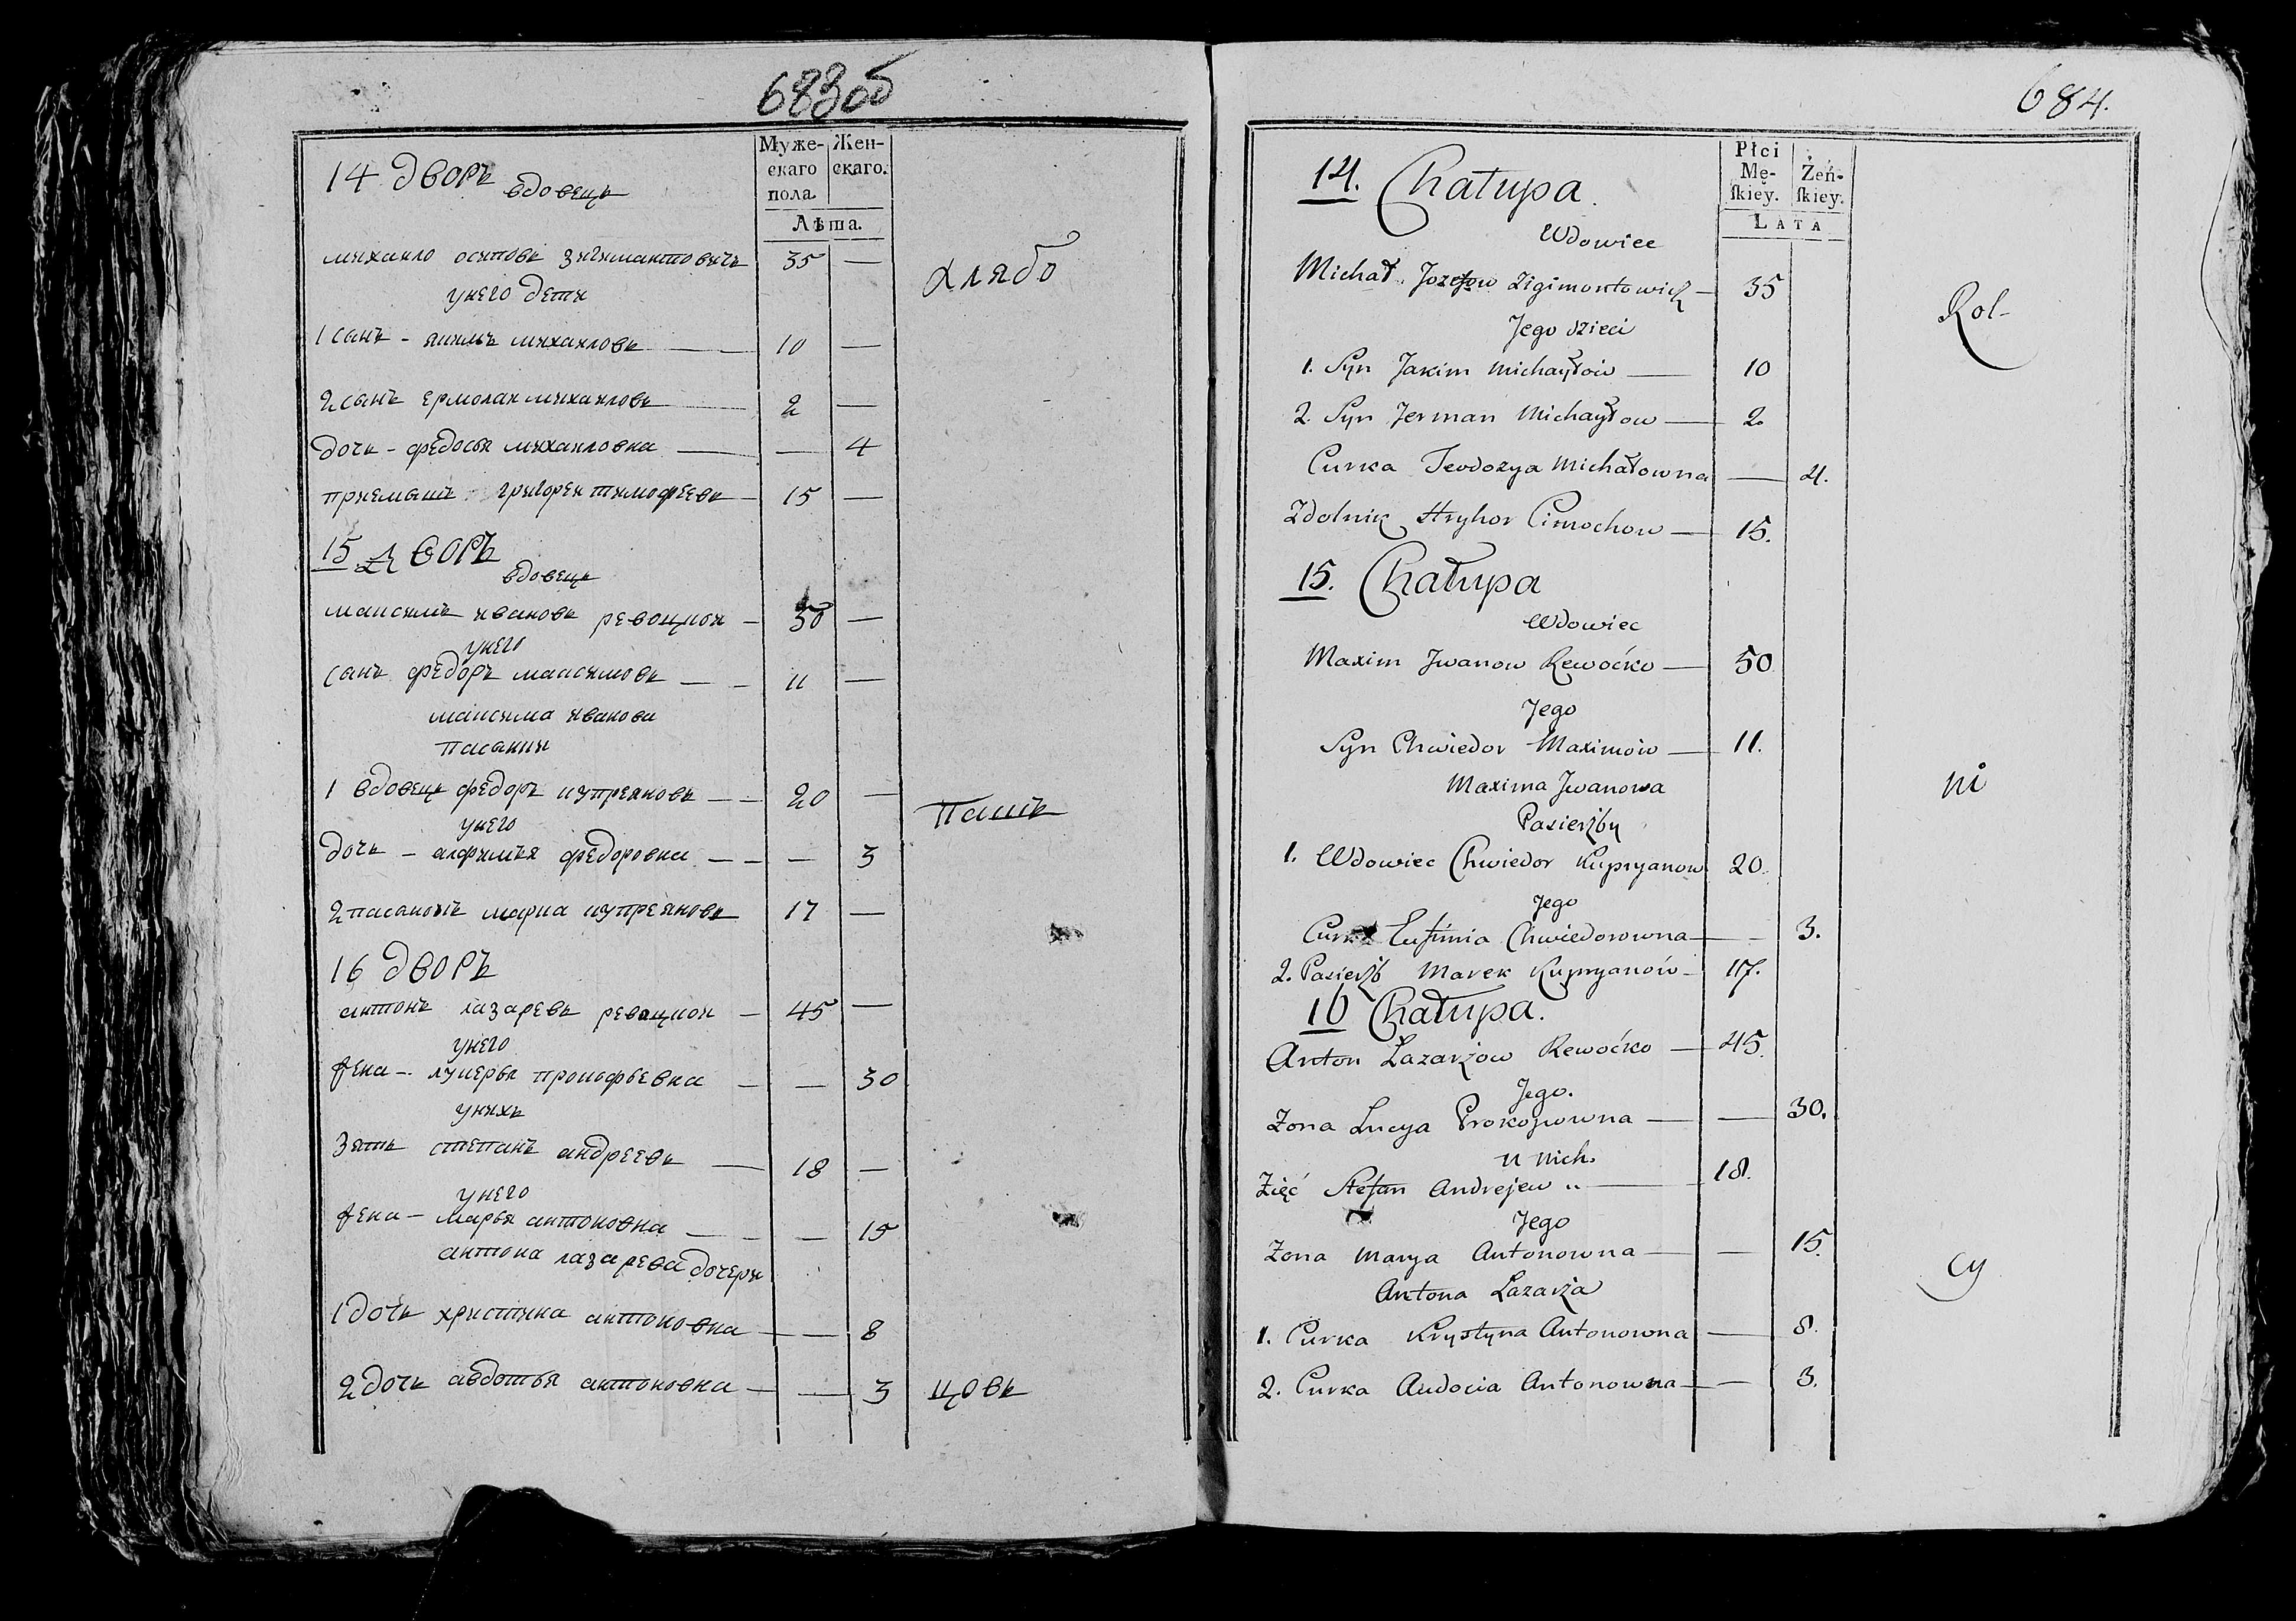 683об
Муже-
скаго
пола.
Жен-
скаго.
Лѣта.
14 дворъ
вдовецъ
михаило осиповъ зигимантовичъ 35 —
унего дети
1 сынъ - якимъ михаиловъ — 10 —
2 сынъ ермолаи михаиловъ — 2 —
дочь - федосья михаиловна — — 4
приемышъ григореи тимофеевъ — 15 —
хлябо
15 дворъ
вдовецъ
максимъ ивановъ ревоцкои — 50 —
унего
сынъ федоръ максимовъ — — 11 —
максима иванова
пасынки
1 вдовецъ федоръ купреяновъ — — 20 —
унего
дочь — алфимья федоровна — — — 3
2 пасынокъ марка купреяновъ 17 —
пашъ
16 дворъ
антонъ лазаревъ ревоцкои — 45 —
унего
жена — лукерья прокофьевна — — 30
унихъ
зять степанъ андреевъ — 18 —
унего
жена — марья антоновна — — — 15
антона лазарева дочери
1 дочь христина антоновна — — 8
2 дочь авдотья антоновна — — 3
цовъ
684.
Płci
Mę-
skiey.
Żeń-
skiey.
LATA
14. Chałupa.
Wdowiec
Michał Jozefow Zigimontowicz — 35
Jego dzieci
1. Syn Jakim Michayłow — 10
2. Syn Jerman Michayłow — 2
Curka Teodozya Michałowna — 4.
Zdolnik Hryhor Cimochow — 15.
Rol-
15. Chałupa
Wdowiec
Maxim Jwanow Rewoćko — 50
Jego
Syn Chwiedor Maximów — 11.
Maxima Jwanowa
Pasierzby
1. Wdowiec Chwiedor Kupryanow 20.
Jego
Curka Eufimia Chwiedorowna — — 3.
2. Pasierzb Marek Kupryanów — 17.
ni
16 Chałupa.
Anton Łazarzow Rewoćko — 45.
Jego.
Zona Łucya Prokopowna — — 30.
u nich.
Zięć Stefan Andrejew — 18.
Jego
Zona Marya Antonowna — — 15.
Antona Łazarza
1. Curka Krystyna Antonowna — 8.
2. Curka Audocia Antonowna — — 3.
cy